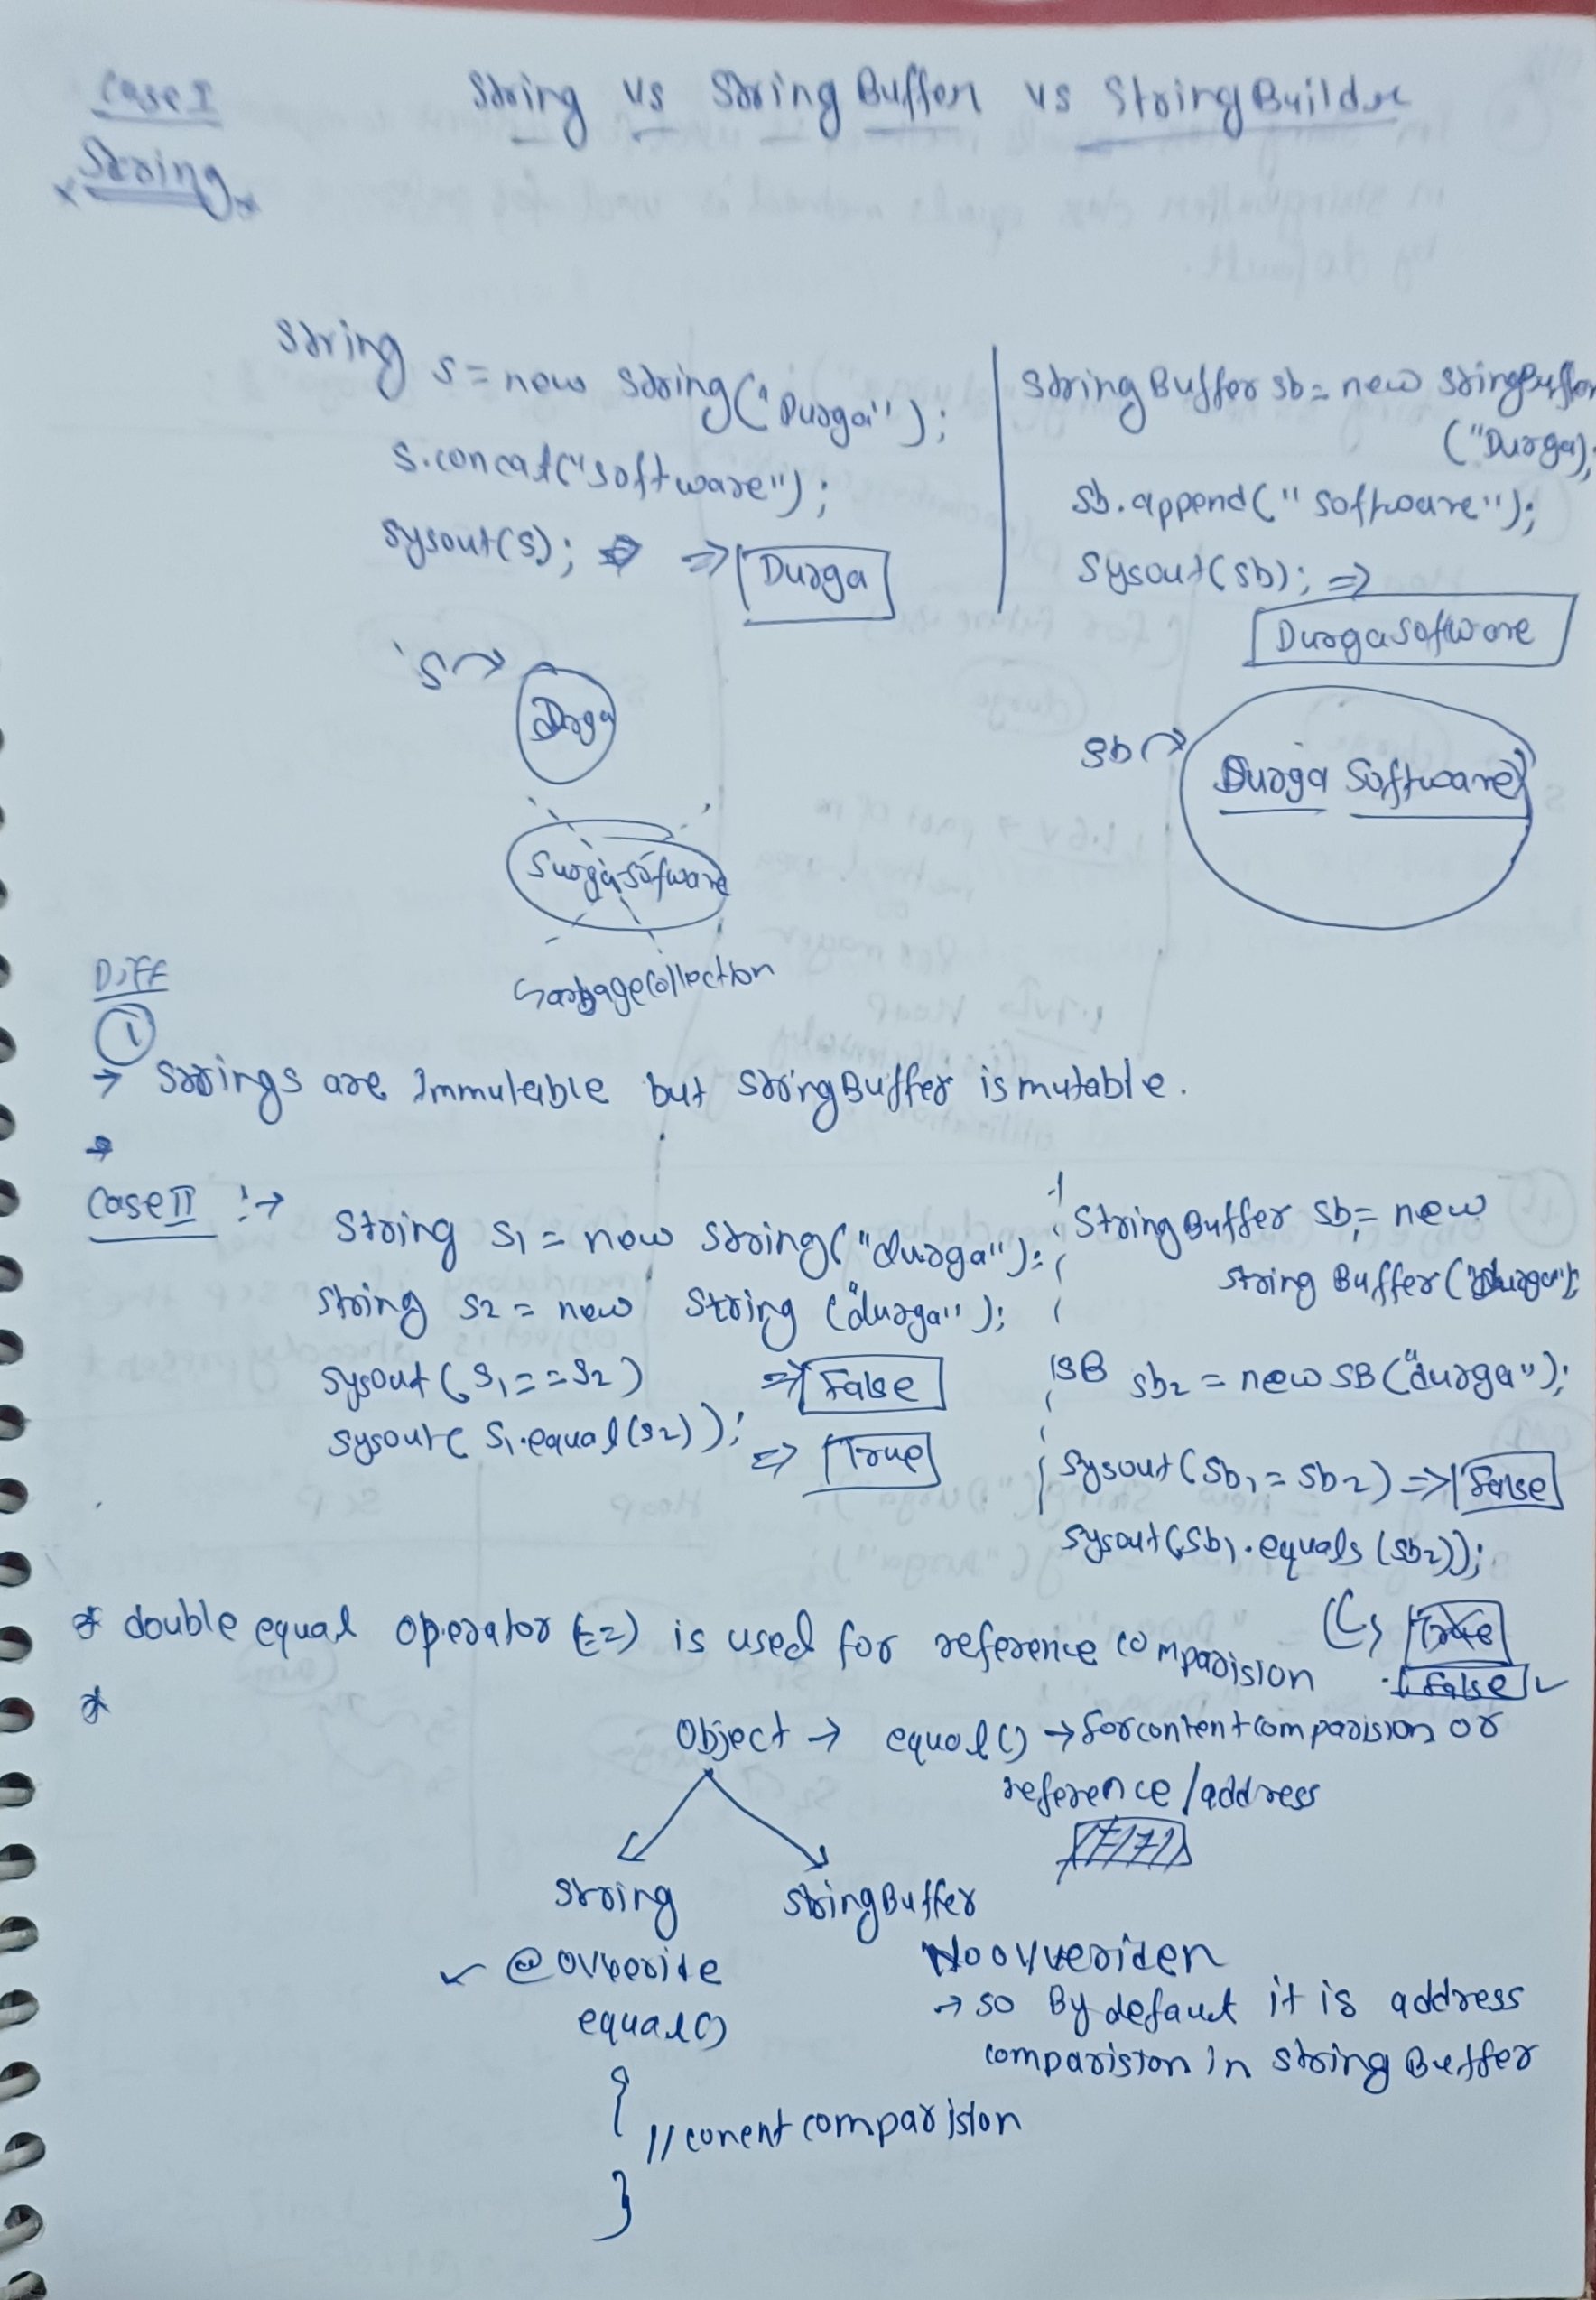 Case I
String vs StringBuffer vs StringBuilder
String
String s = new String("Durga");
s.concat("software");
sysout(s); => Durga
s
Durga
Durgasofware
Garbagecollection
StringBuffer sb = new StringBuffer
("Durga);
sb.append("software");
Sysout(sb); =>
Durgasoftware
sb
Durga Software
Diff
1
→ Strings are Immutable but StringBuffer is mutable.
→
Case II :→
String s1 = new String("durga");
String s2 = new String ("durga");
sysout (s1==s2) => False
sysout( s1.equal(s2)); => True
StringBuffer sb1= new
String Buffer("durga");
SB sb2 = new SB("durga");
sysout(sb1 = sb2) => False
sysout(sb1.equals(sb2));
True
False
* double equal operator (==) is used for reference comparision
*
Object → equal() → for content comparision or
reference/address
String StringBuffer
@override No overiden
equal() → so By defaut it is address
comparision in string Buffer
{
// conent comparision
}